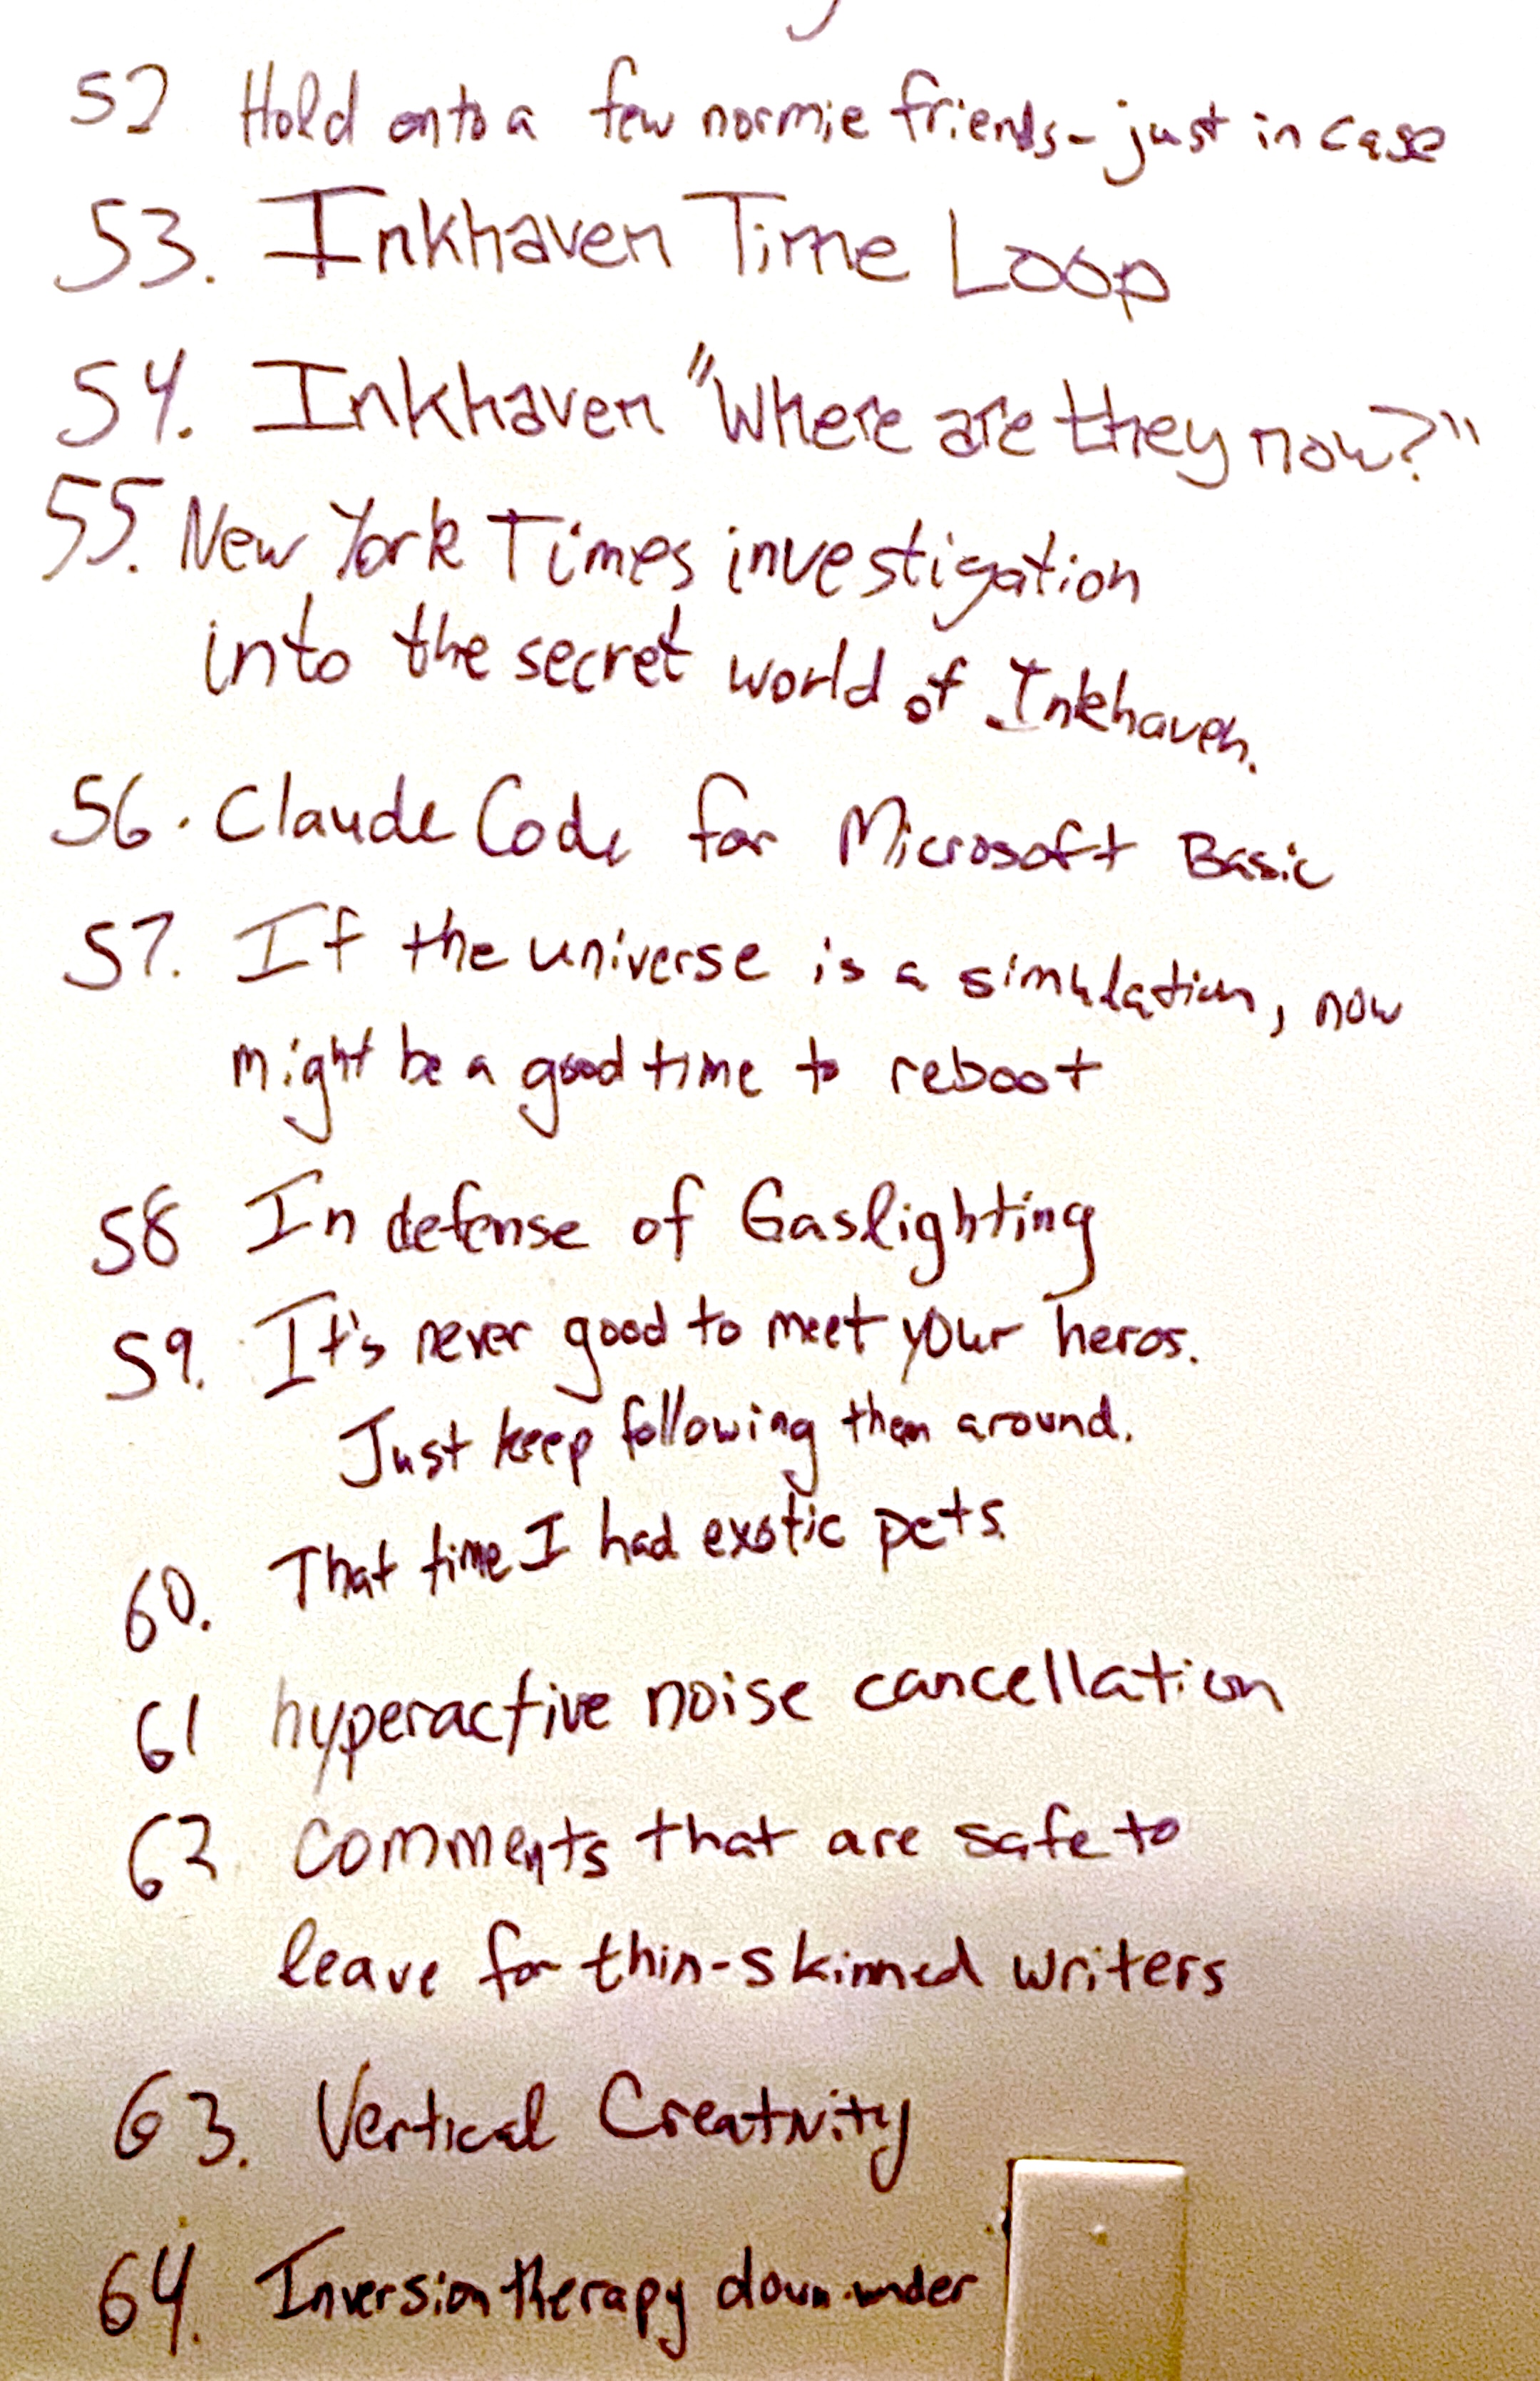 52 Hold onto a few normie friends - just in case
53. Inkhaven Time Loop
54. Inkhaven "Where are they now?"
55. New York Times investigation
into the secret world of Inkhaven.
56. Claude Code for Microsoft Basic
57. If the universe is a simulation, now
might be a good time to reboot
58 In defense of Gaslighting
59. It's never good to meet your heros.
Just keep following them around.
60. That time I had exotic pets.
61 hyperactive noise cancellation
62 comments that are safe to
leave for thin-skinned writers
63. Vertical Creativity
64. Inversion therapy down under